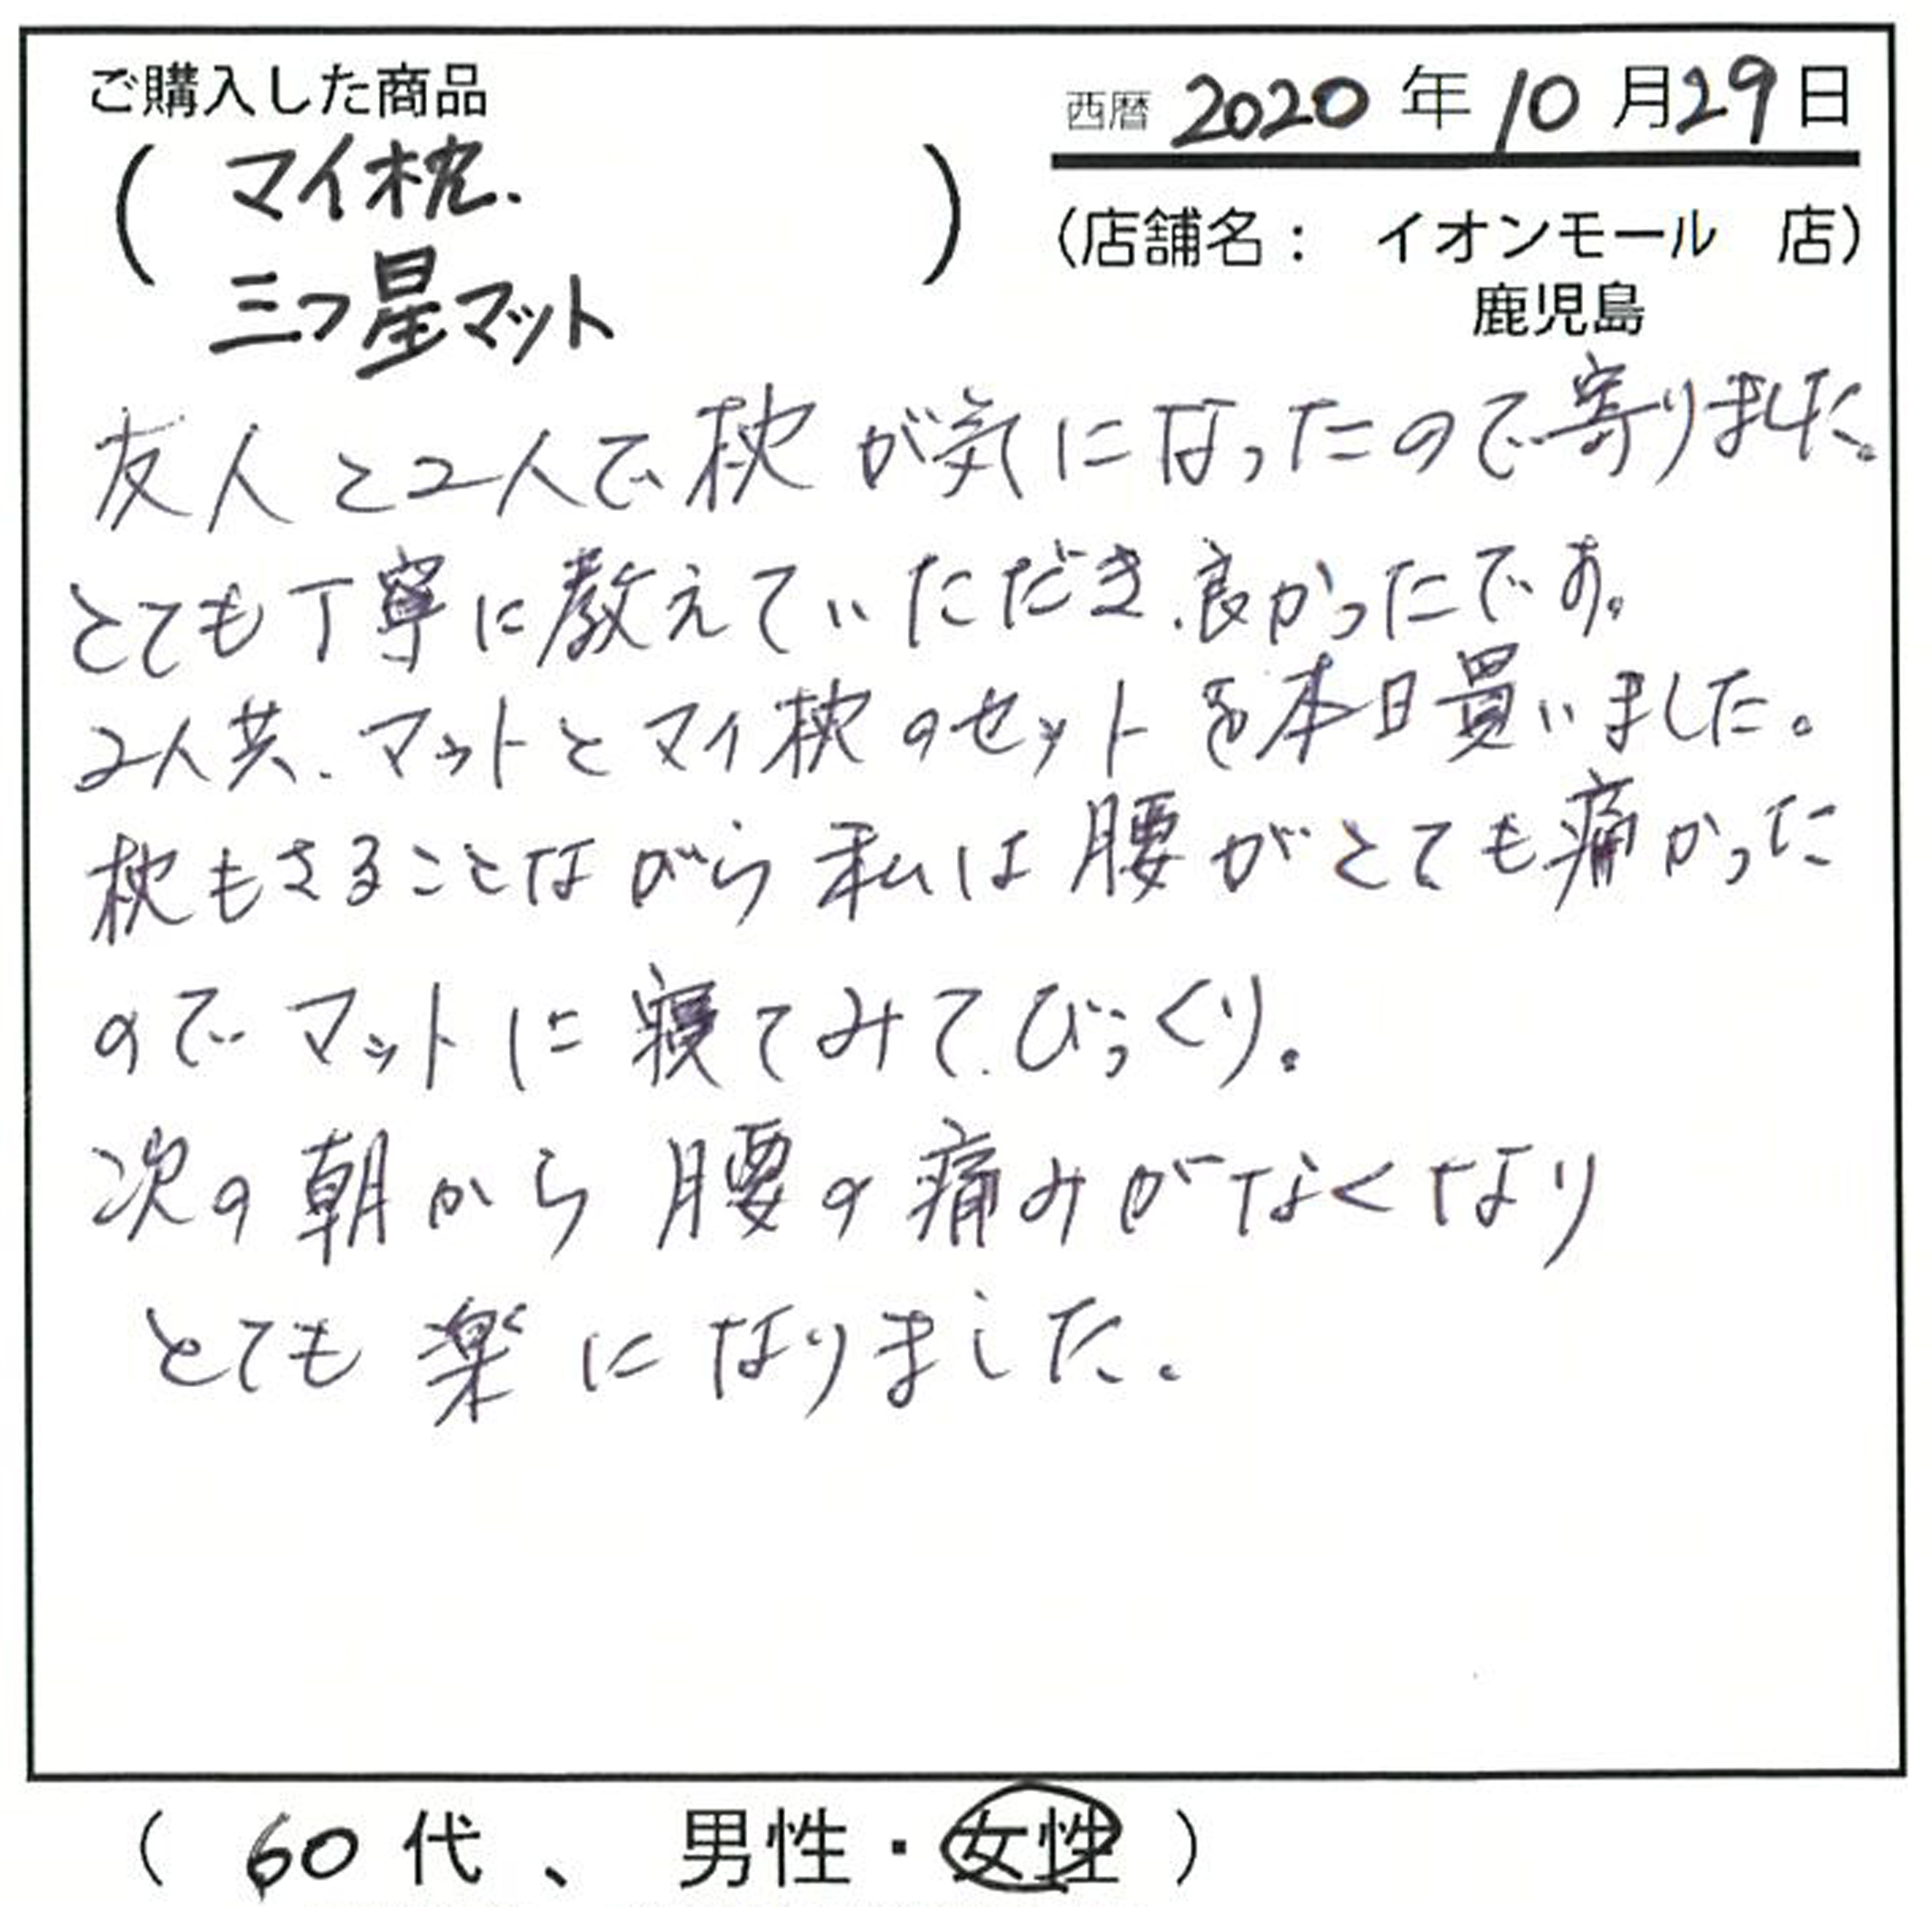 ご購入した商品
西暦 2020 年 10 月 29 日
( マイ枕.
三つ星マット )
(店舗名： イオンモール 店)
鹿児島
友人と2人で枕が気になったので寄りました。
とても丁寧に教えていただき、良かったです。
2人共、マットとマイ枕のセットを本日買いました。
枕もさることながら私は腰がとても痛かった
のでマットに寝てみて、びっくり。
次の朝から腰の痛みがなくなり
とても楽になりました。
( 60 代 、 男性・女性 )